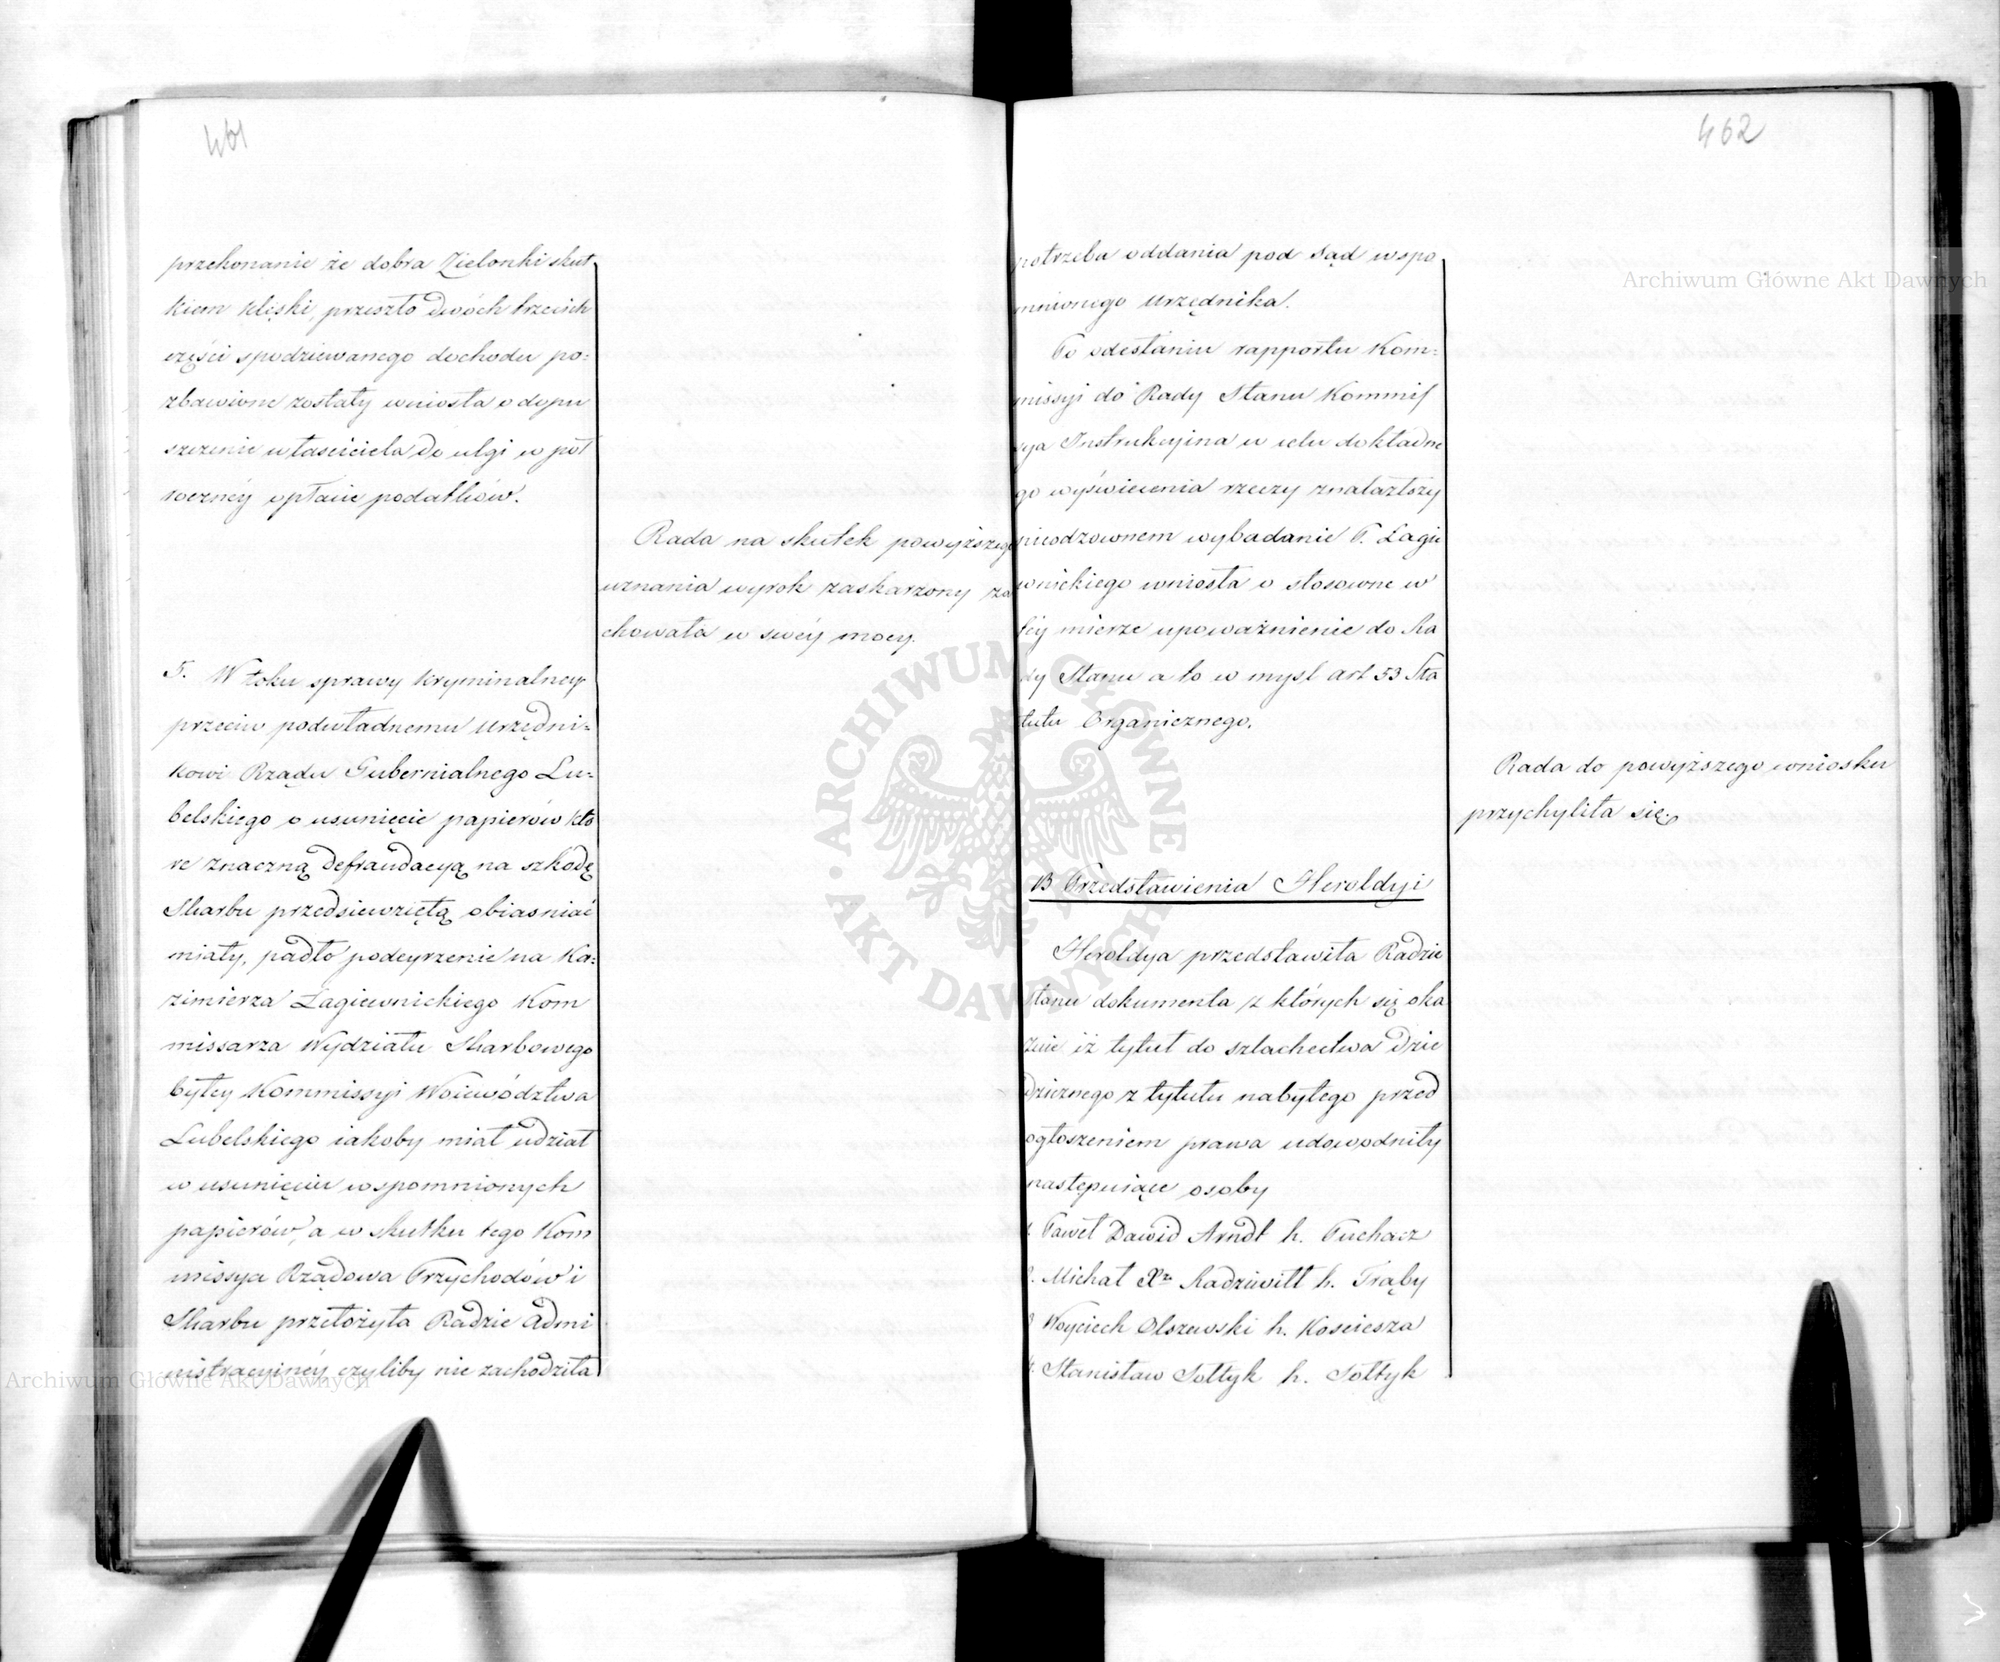 461
przekonanie że dobra Zielonki skut
kiem klęski, przeszło dwóch trzecich
części spodziewanego dochodu po=
zbawione zostały wniosła o dopu
szczenie właściciela do ulgi w pół
roczney opłacie podatków.
Rada na skutek powyższego
uznania wyrok zaskarzony za
chowała w swéy mocy.
5. W toku sprawy kryminalney
przeciw podwładnemu urzędni=
kowi Rządu Gubernialnego Lu=
belskiego o usunięcie papierów któ
re znaczną defraudacyą na szkodę
Skarbu przedsiewziętą obiasniać
miały, padło podeyrzenie na Ka=
zimierza Łagiewnickiego Kom
missarza Wydziału Skarbowego
byłey Kommissyi Woiewództwa
Lubelskiego iakoby miał udział
w usunięciu wspomnionych
papierów, a w skutku tego Kom
missya Rządowa Przychodów i
Skarbu przełożyła Radzie Admi
nistracyinéy czyliby nie zachodziła
462
potrzeba oddania pod Sąd wspo
mnionego urzędnika.
Po odesłaniu rapportu Kom=
missyi do Rady Stanu Kommis
sya Instrukcyina w celu dokładne
go wyświecenia rzeczy znalazłszy
nieodzownem wybadanie P. Łagie
wnickiego wniosła o stosowne w
téy mierze upoważnienie do Ra
dy Stanu a to w mysl art 53 Sta
tutu Organicznego.
Rada do powyższego wniosku
przychyliła się.
B Przedstawienia Heroldyi
Heroldya przedstawiła Radzie
Stanu dokumenta z których się oka
zuie iż tytuł do szlachectwa dzie
dzicznego z tytułu nabytego przed
ogłoszeniem prawa udowodniły
następuiące osoby
1. Paweł Dawid Arndt h. Puchacz
2. Michał Xże Radziwiłł h. Trąby
3. Woyciech Olszewski h. Kosciesza
4. Stanisław Sołtyk h. Sołtyk
Archiwum Główne Akt Dawnych
ARCHIWUM GŁÓWNE AKT DAWNYCH
Archiwum Główne Akt Dawnych